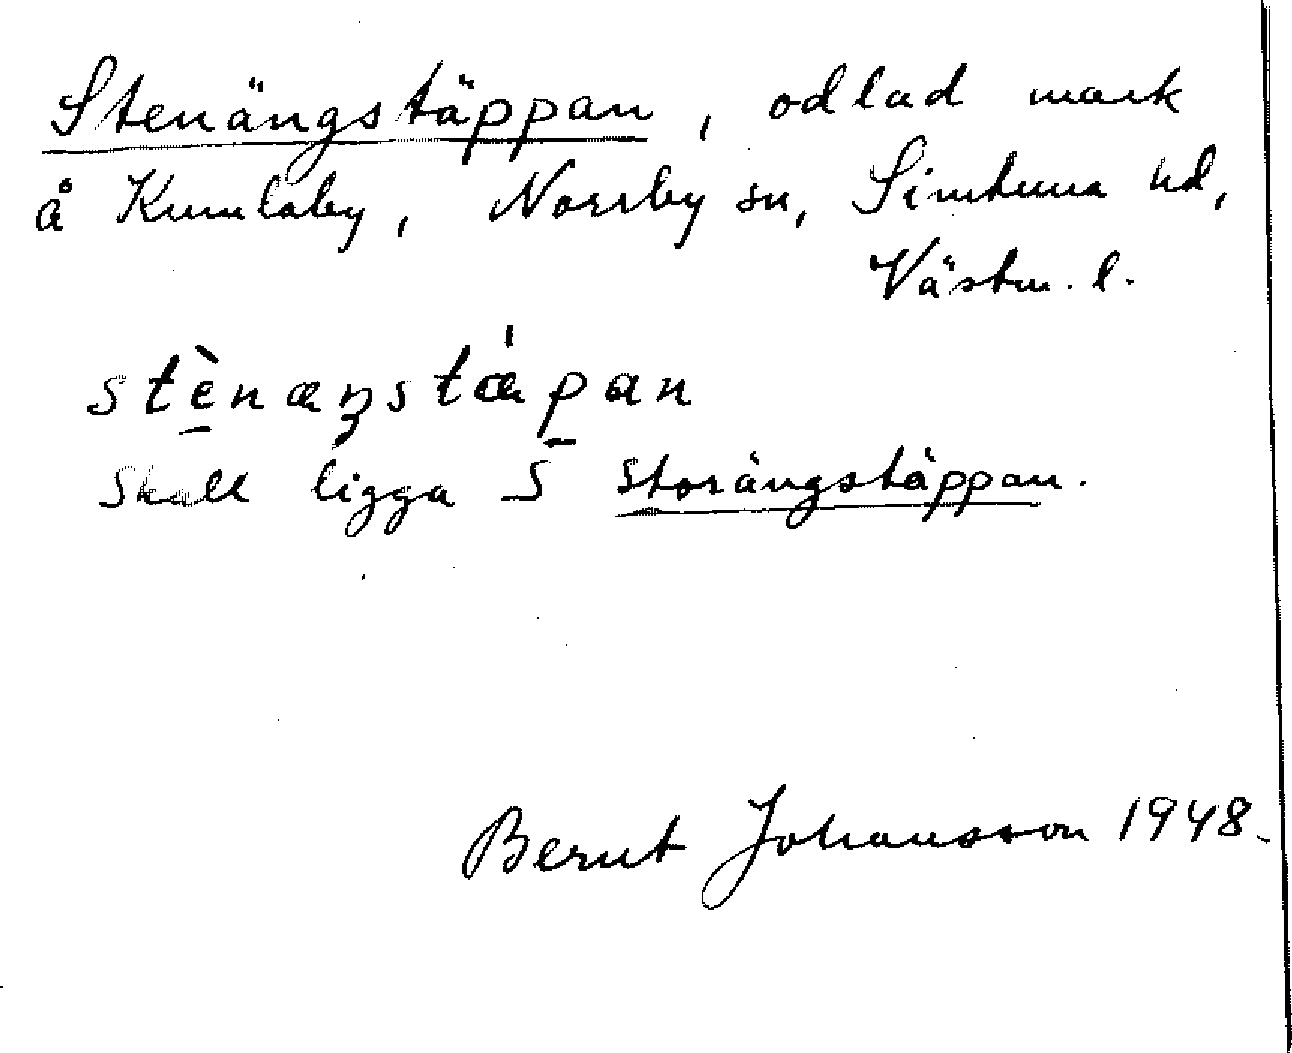 Stenängstäppan, odlad mark
å Kumlaby, Norrby sn, Simtuna hd,
Västm. l.
stè̱næŋstǽp̱an
Skall ligga S Storängstäppan.
Bernt Johansson 1948.